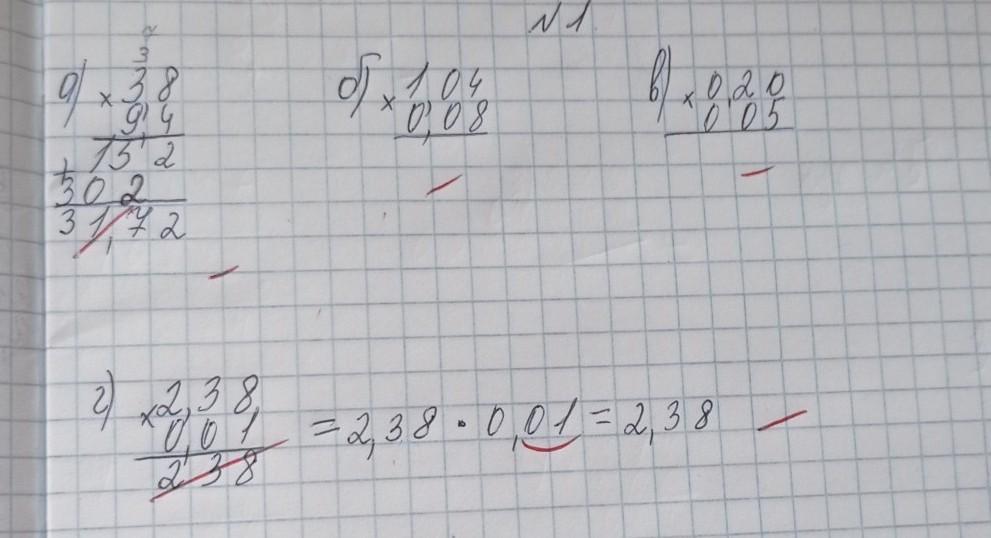 №1
3
а) × 38
9,4
152
+
302
31,72
б) × 104
0,08
в) × 0,20
0 05
г) × 2,38
0,01
238
= 2,38 · 0,01 = 2,38